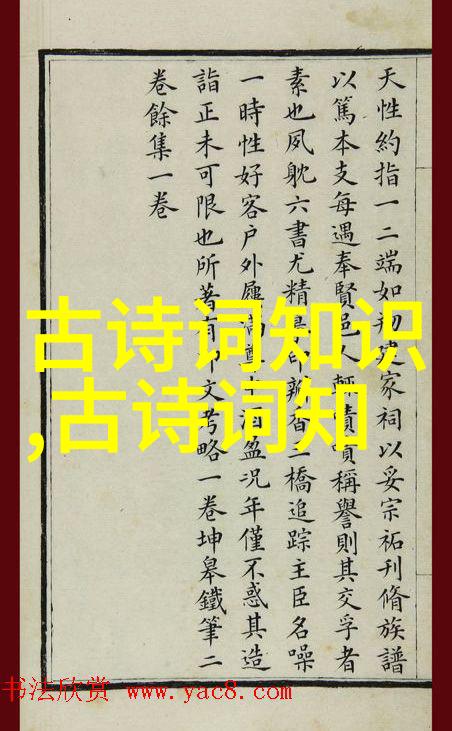 天性約指一二端如建家祠以妥宗祏刊脩族譜
以篤本支每遇奉賢邑人輙嘖嘖稱譽則其交孚者
素也夙躭六書尤精印瓣香二橋追踪主臣名噪
一時性好客户外屨滿尊中酒盈况年僅不惑其造
詣正未可限也所著有印文考略一卷坤皋鐵筆二
卷餘集一卷
古诗词知识
,古诗词知
书法欣赏 www.yac8.com